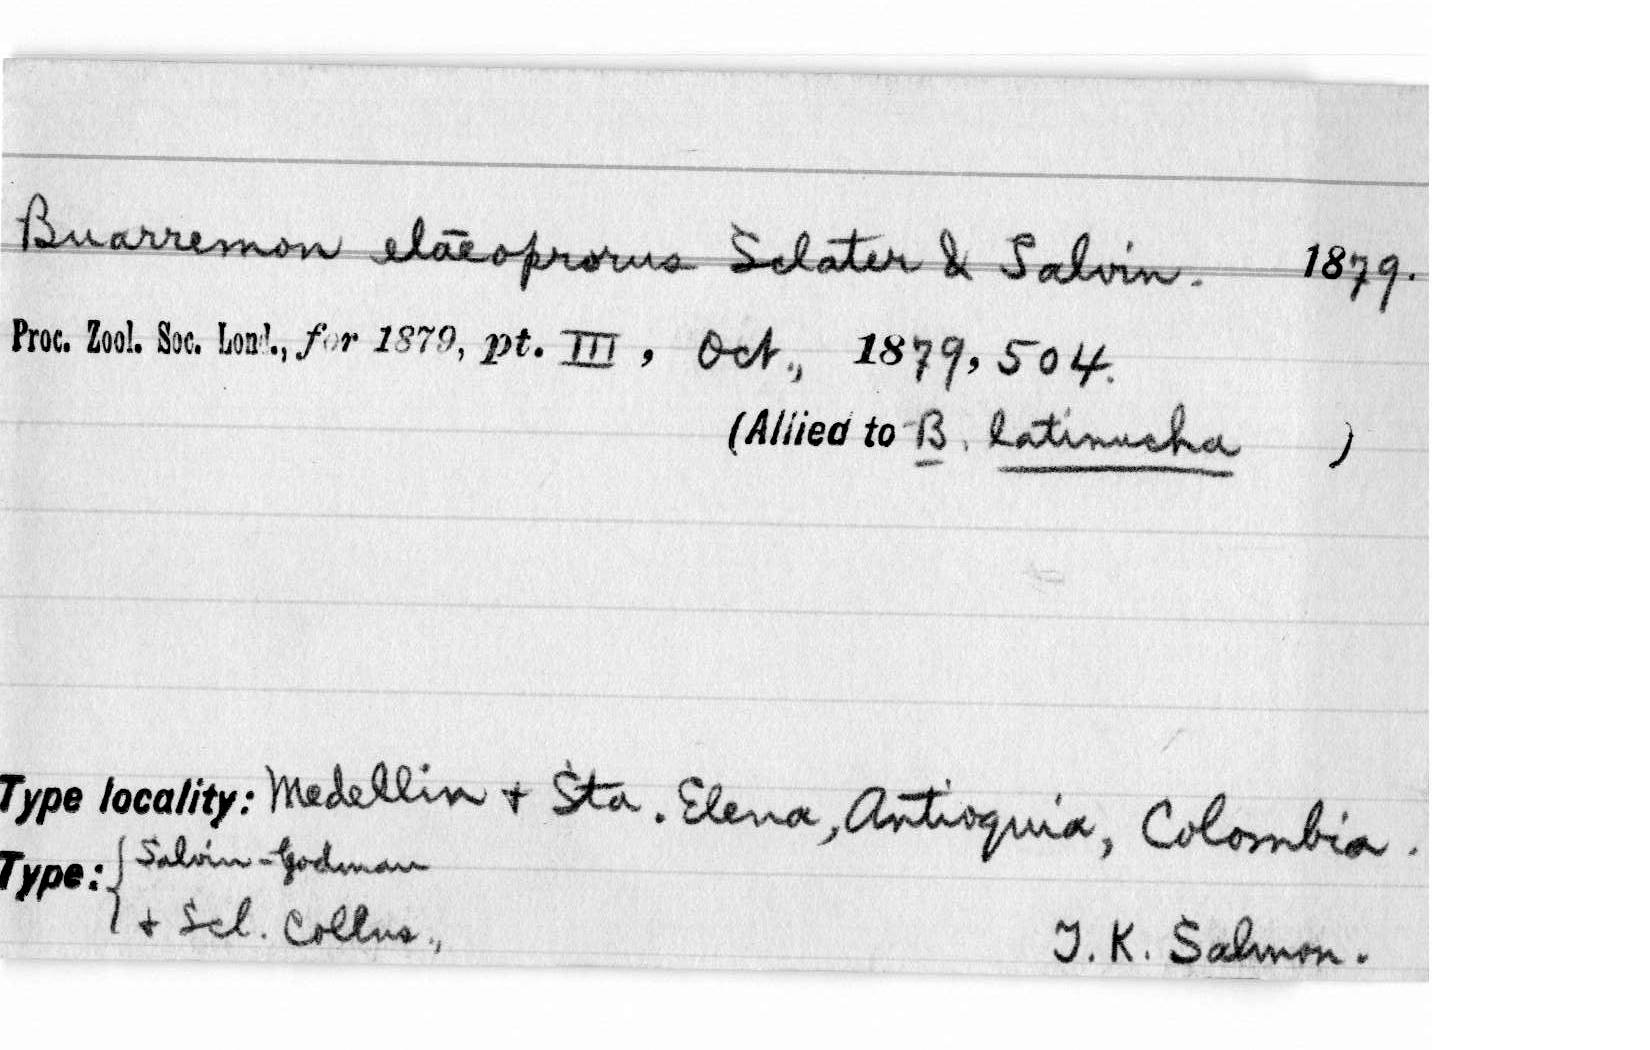 Buarremon elaeoprorus Sclater & Salvin. 1879.
Proc. Zool. Soc. Lond., for 1879, pt. III, Oct., 1879, 504.
(Allied to B. latinucha )
Type locality: Medellin + Sta. Elena, Antioquia, Colombia.
Type: { Salvin-Godman
+ Scl. Collns.,
T. K. Salmon.